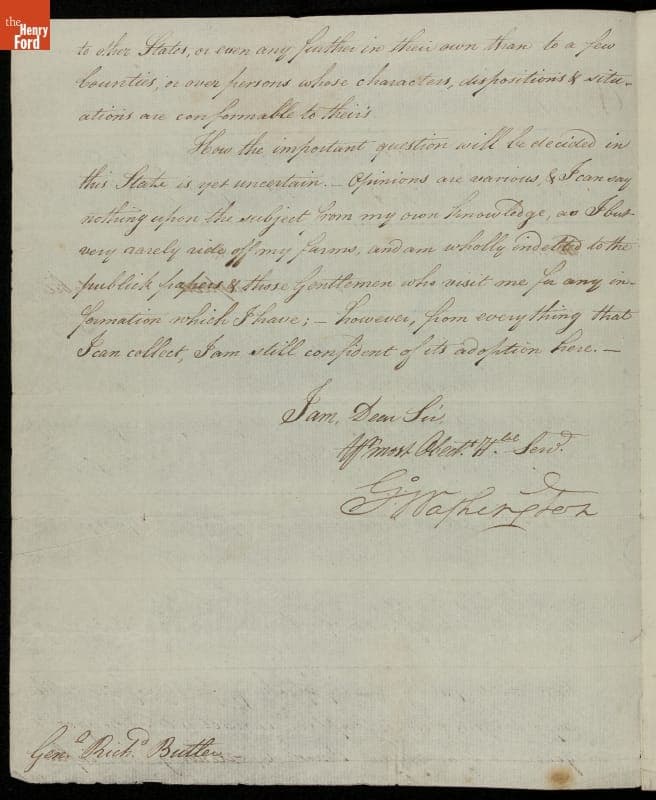 the
Henry
Ford
to other States, or even any further in their own than to a few
Counties, or over persons whose characters, dispositions & situ-
ations are conformable to their's
How the important question will be decided in
this State is yet uncertain. — Opinions are various, & I can say
nothing upon the subject from my own knowledge, as I but
very rarely ride off my farms, and am wholly indebted to the
publick papers & those Gentlemen who visit me for any in-
formation which I have; — however, from everything that
I can collect, I am still confident of its adoption here. —
I am, Dear Sir,
Yr. most Obedt. Hble Servt.
Go. Washington
Genl. Richd. Butler